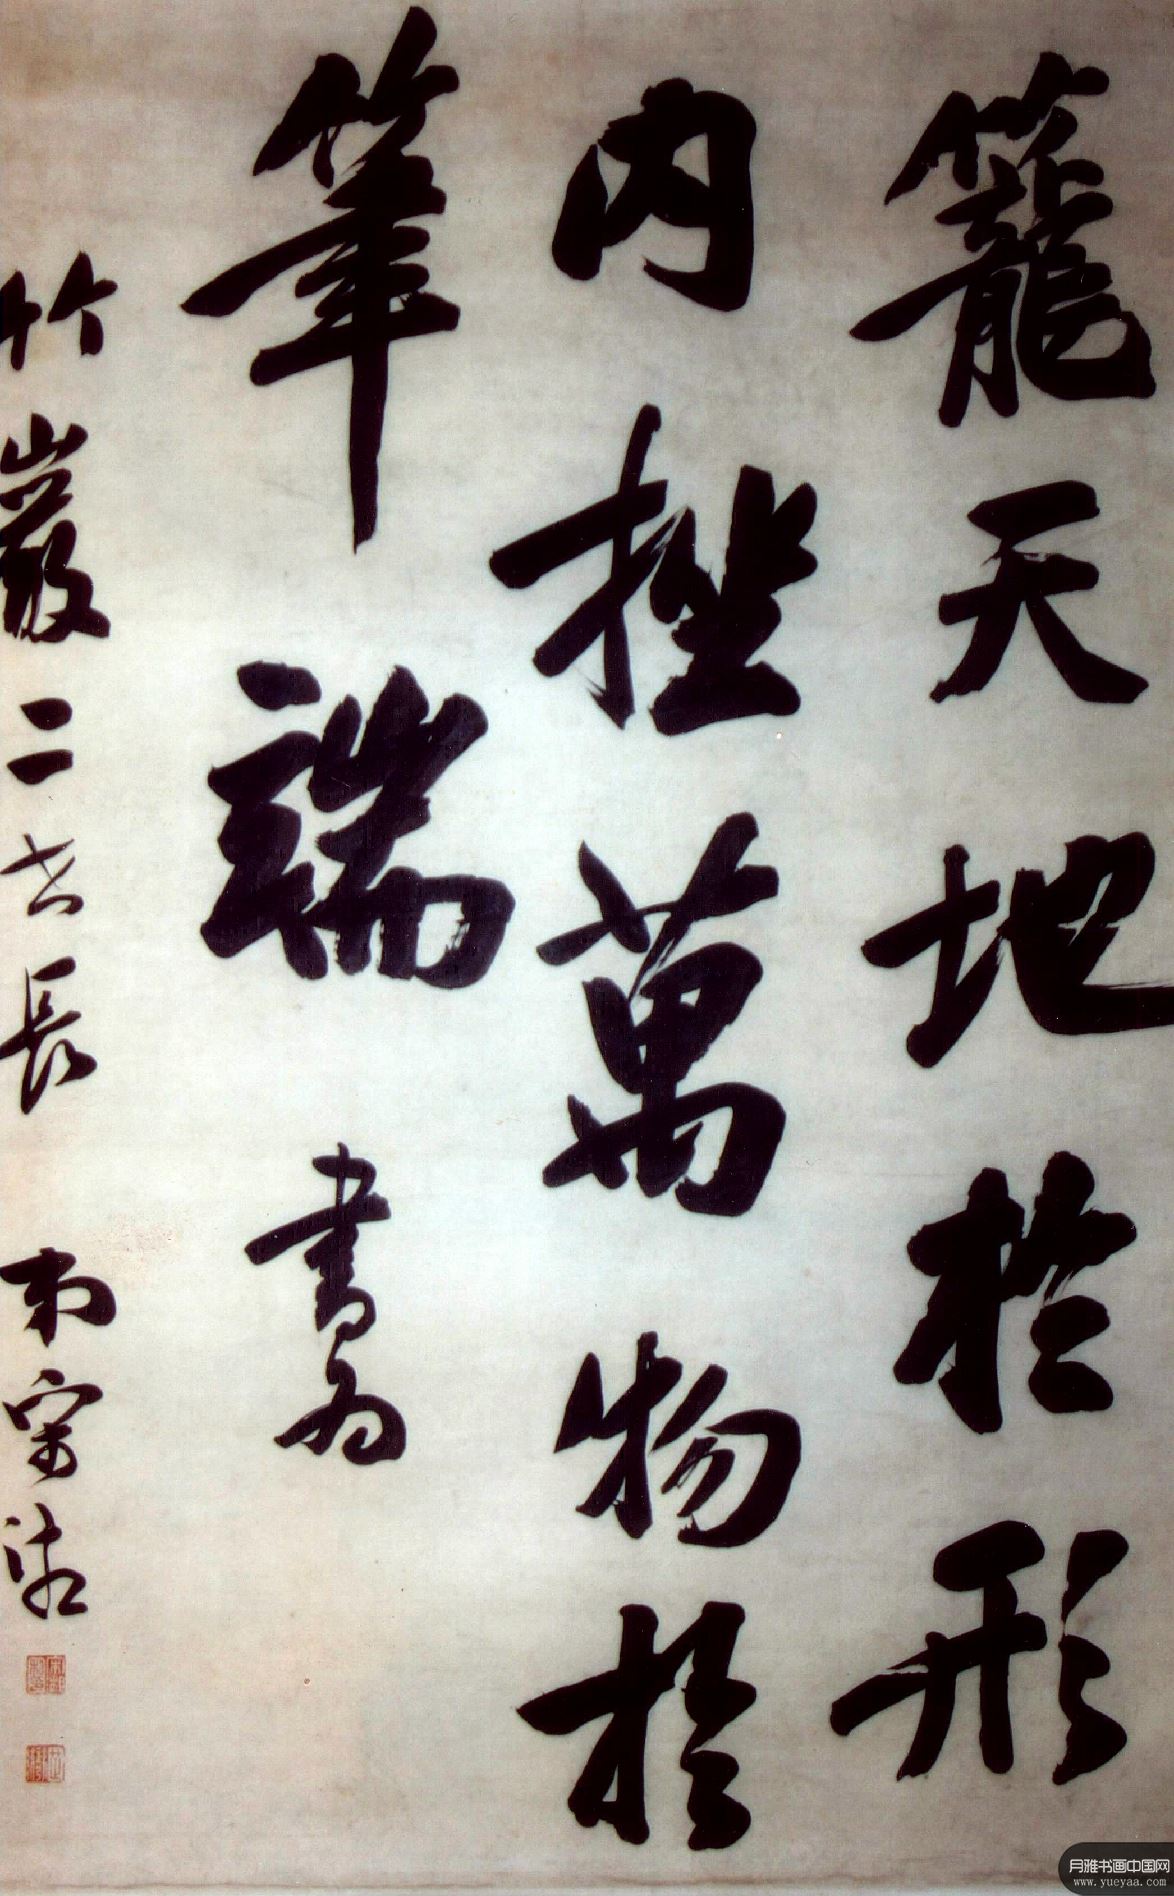 籠天地於形
内挫萬物於
筆端 書為
竹巖二老長 宋湘
月雅书画中国网
www.yueyaa.com